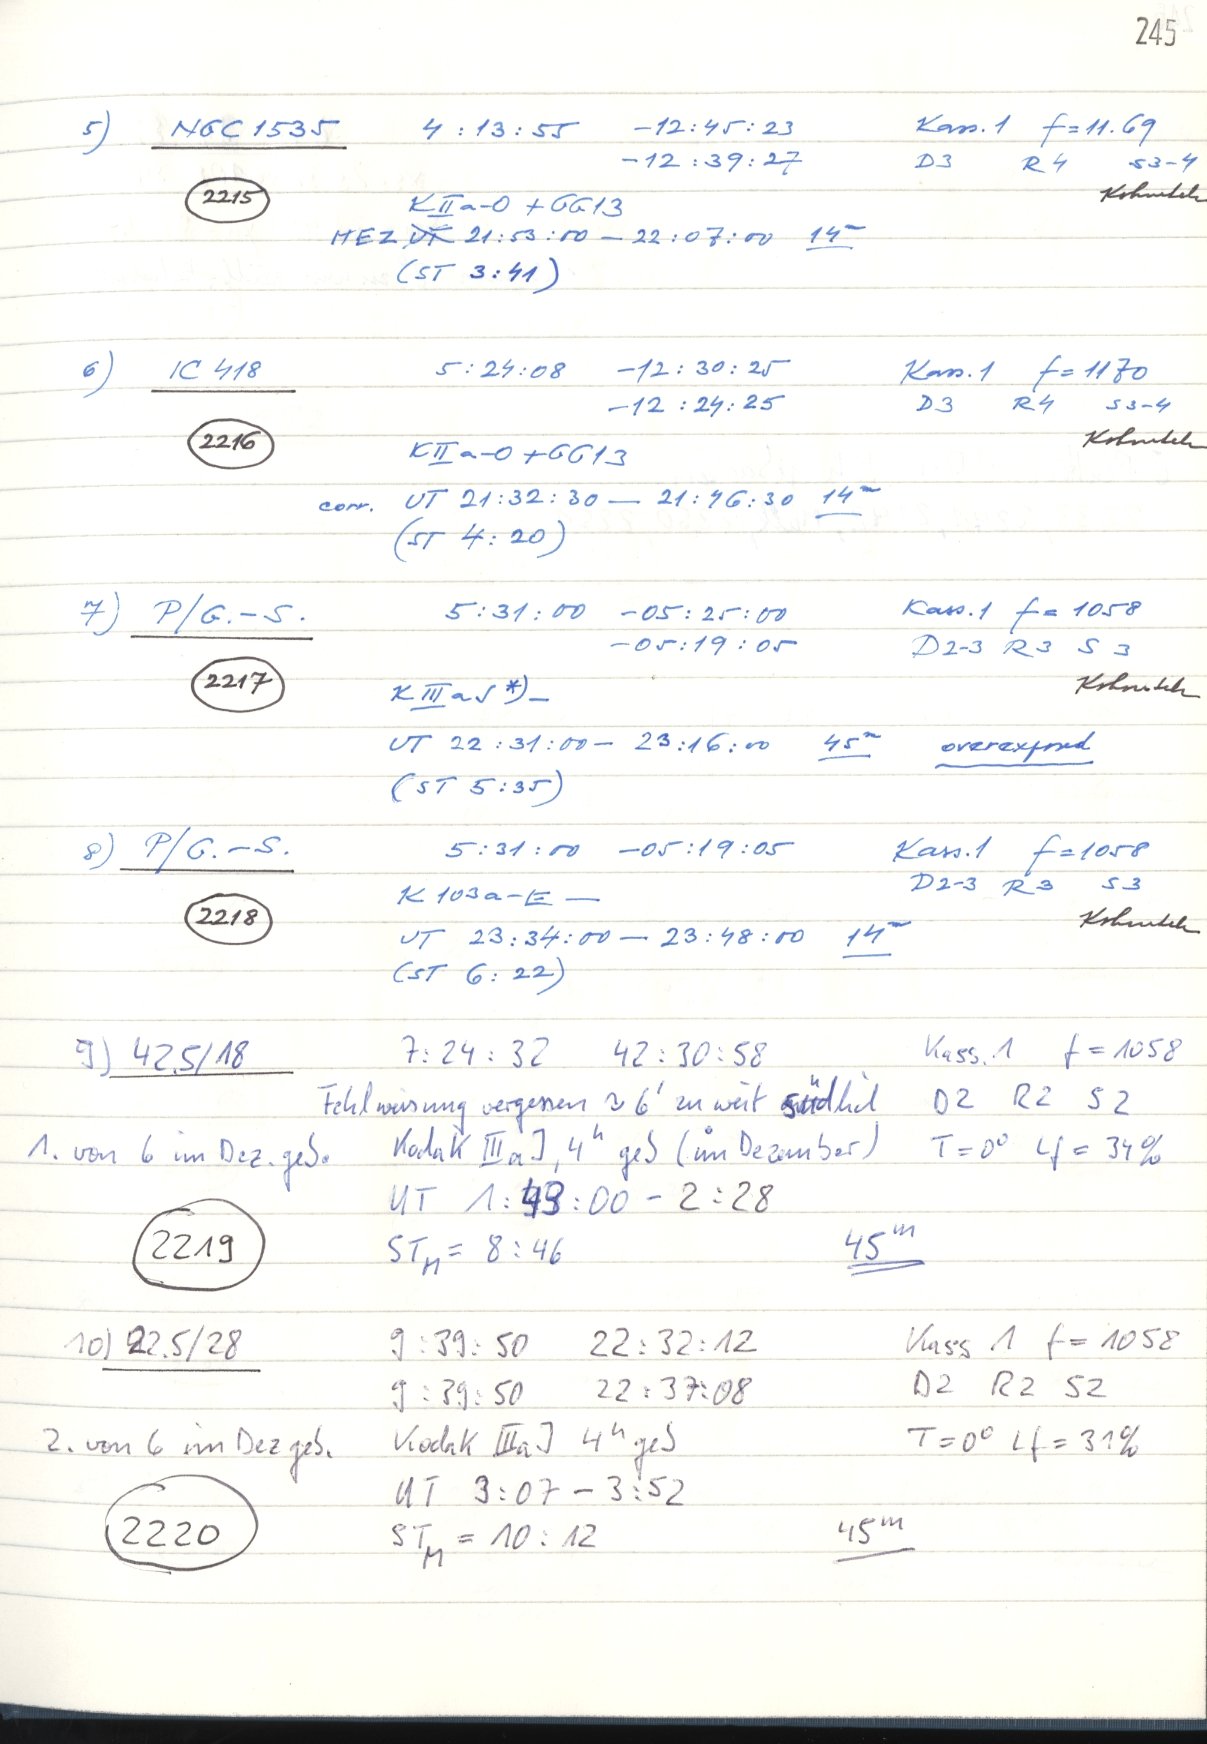 245
5) NGC 1535 4:13:55 -12:45:23 Kass.1 f=11.69
-12:39:27 D3 R4 S3-4
2215 Kohoutek
K II a-O + GG13
MEZ UT 21:53:00 — 22:07:00 14m
(ST 3:41)
6) IC 418 5:24:08 -12:30:25 Kass.1 f=1170
-12:24:25 D3 R4 S3-4
2216 Kohoutek
K II a-O + GG13
corr. UT 21:32:30 — 21:46:30 14m
(ST 4:20)
7) P/G.-S. 5:31:00 -05:25:00 Kass.1 f=1058
-05:19:05 D2-3 R3 S3
2217 Kohoutek
K III a J *) —
UT 22:31:00 — 23:16:00 45m overexposed
(ST 5:35)
8) P/G.-S. 5:31:00 -05:19:05 Kass.1 f=1058
D2-3 R3 S3
K 103a-E —
2218 Kohoutek
UT 23:34:00 — 23:48:00 14m
(ST 6:22)
9) 42.5/18 7:24:32 42:30:58 Kass.1 f=1058
Fehlweisung vergessen ≈ 6' zu weit südlich D2 R2 S2
1. von 6 im Dez. geb. Kodak IIIaJ, 4h geb (im Dezember) T=0° Lf=34%
UT 1:43:00 - 2:28
2219 STM = 8:46 45m
10) 22.5/28 9:39:50 22:32:12 Kass 1 f=1058
9:39:50 22:37:08 D2 R2 S2
2. von 6 im Dez geb. Kodak IIIaJ 4h geb T=0° Lf=31%
UT 3:07 - 3:52
2220 STM = 10:12 45m